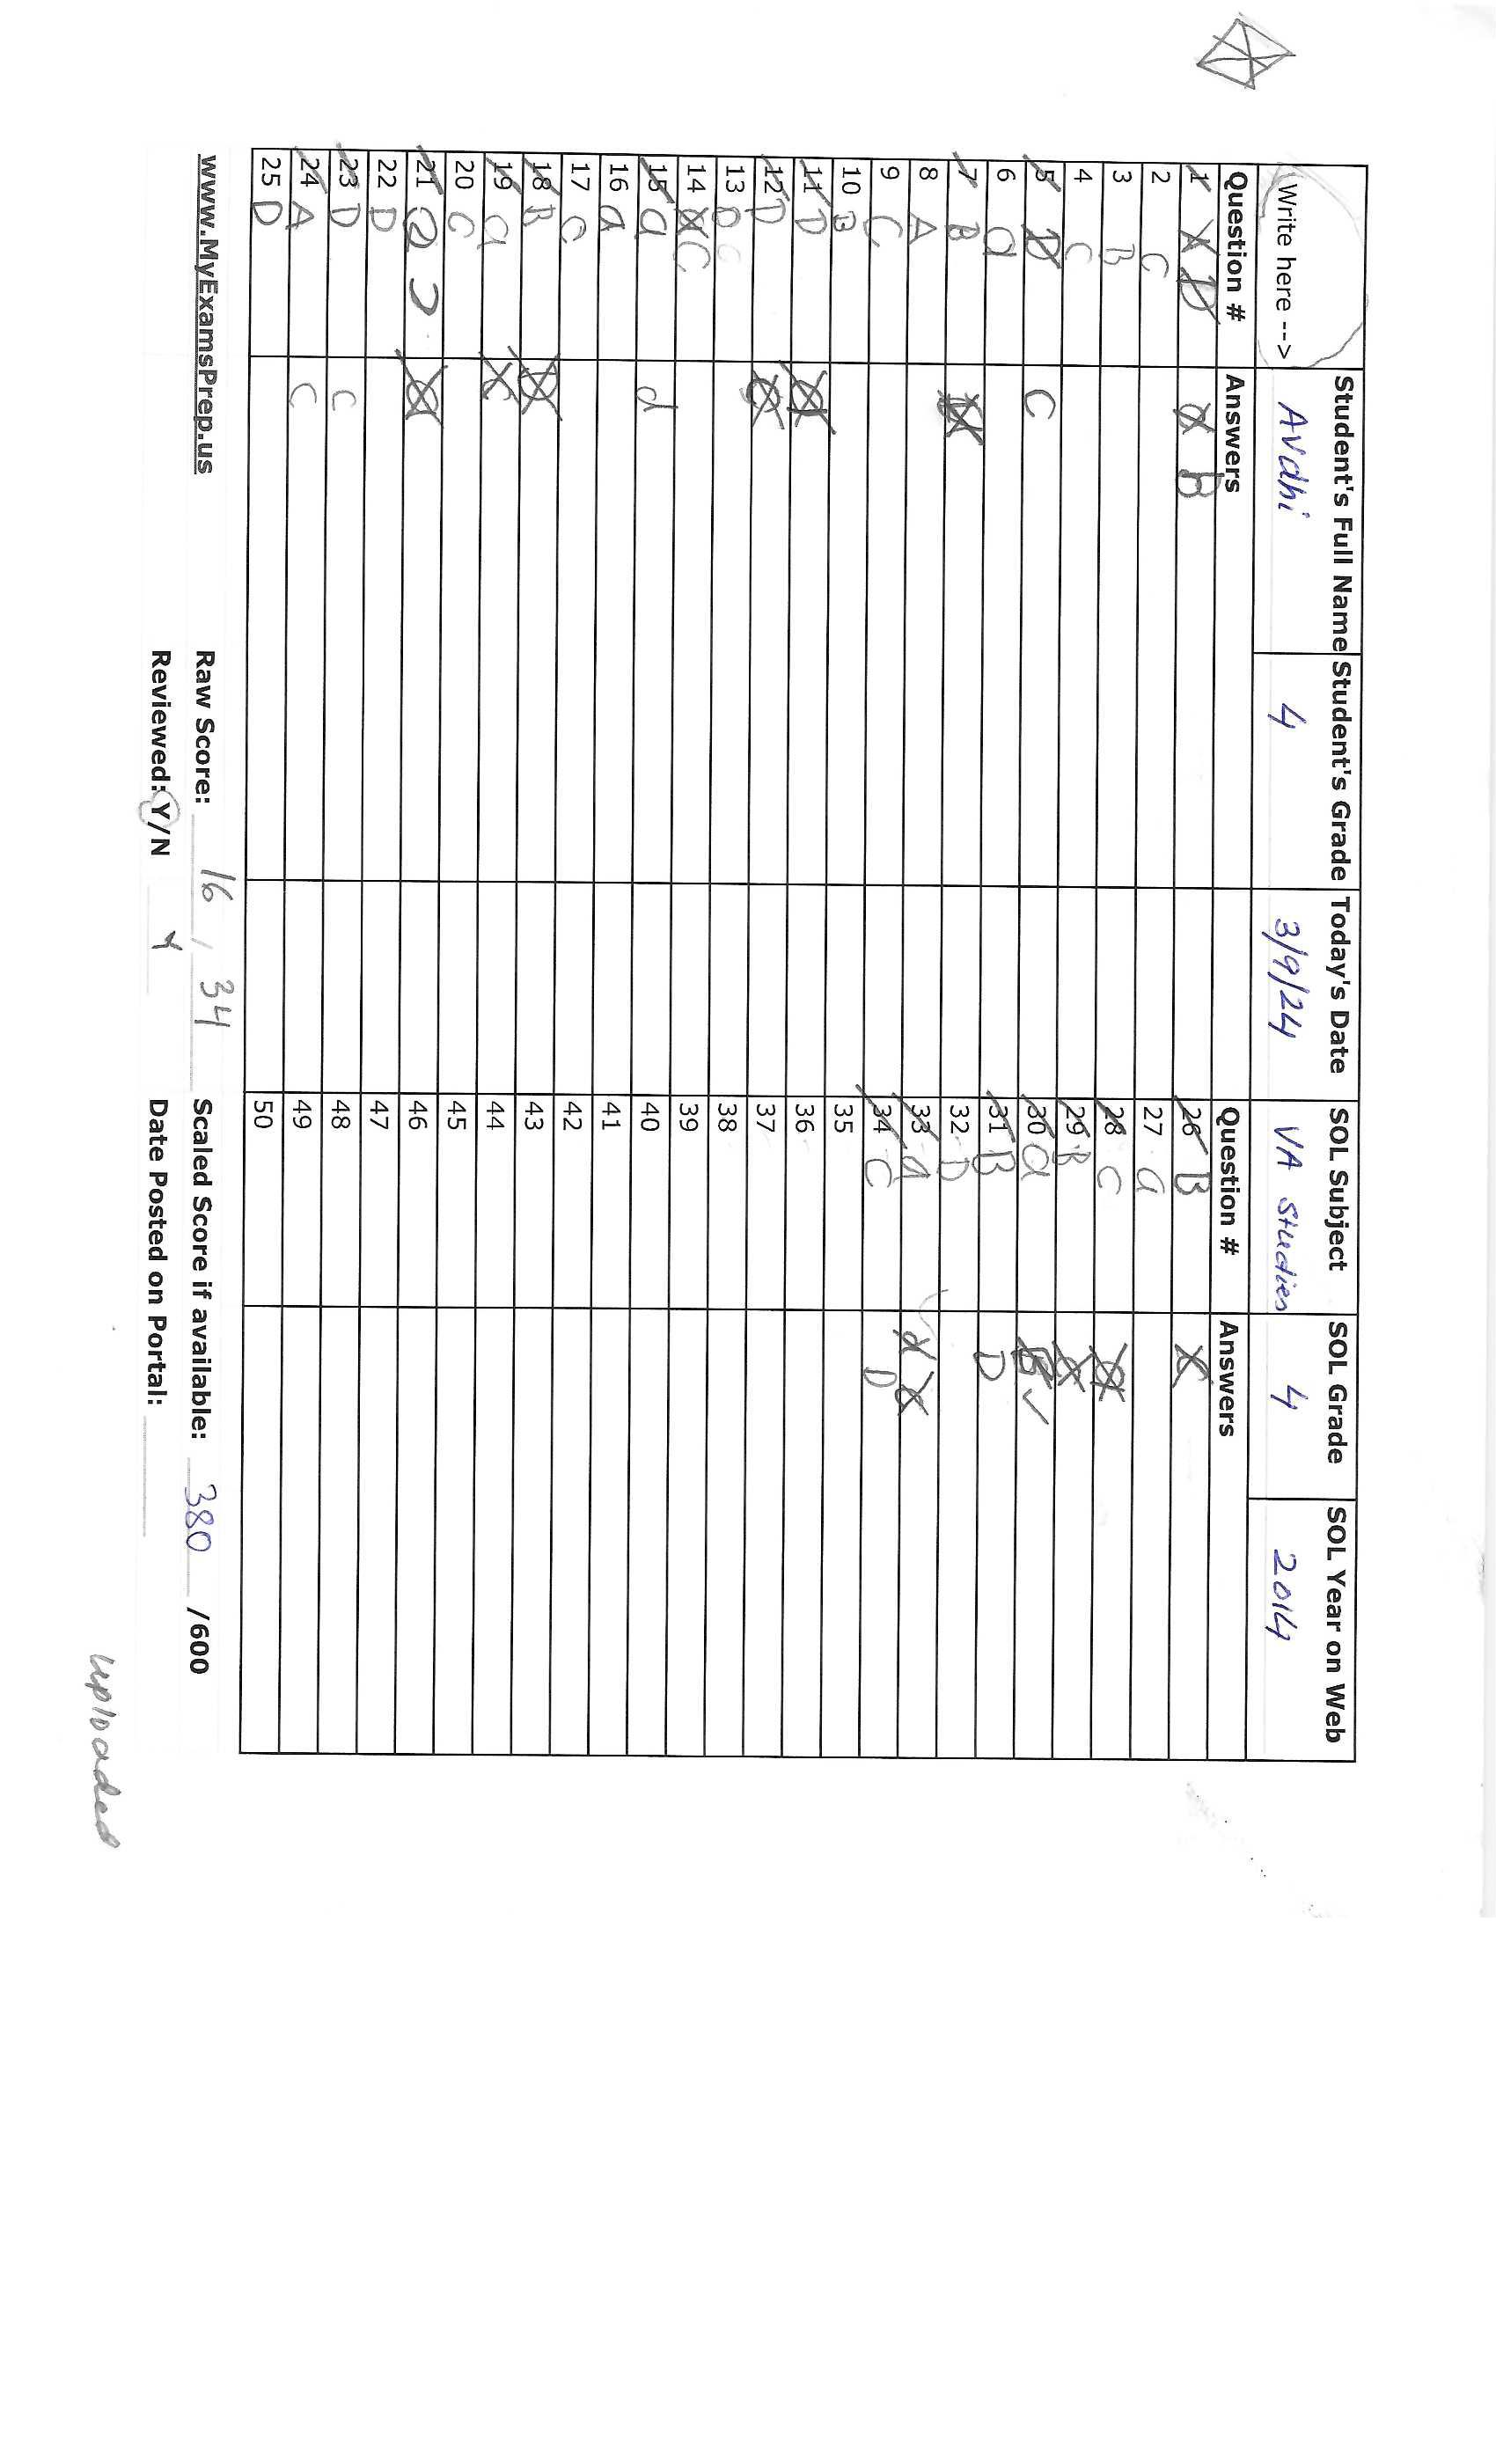 Student's Full Name Student's Grade Today's Date SOL Subject SOL Grade SOL Year on Web
Write here --> Avdhi 4 3/9/24 VA Studies 4 2014
Question # Answers Question # Answers
1 D B 26 B
2 C 27 a
3 B 28 C
4 C 29 B
5 D C 30 a B ✓
6 a 31 B D
7 B 32 D
8 A 33 a
9 C 34 C D
10 B 35
11 D 36
12 D 37
13 38
14 C 39
15 a d 40
16 a 41
17 C 42
18 B 43
19 a 44
20 C 45
21 46
22 D 47
23 D C 48
24 A C 49
25 D 50
www.MyExamsPrep.us Raw Score: 16 / 34 Scaled Score if available: 380 /600
Reviewed: Y/N Y Date Posted on Portal:
uploaded